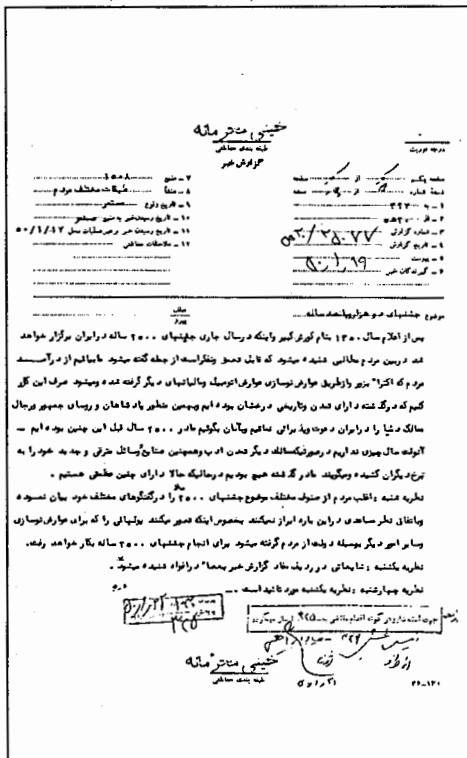 خیلی محرمانه
طبقه بندی حفاظتی
گزارش خبر
درجه فوریت
صفحه یکم از صفحه
نسخه شماره از صفحه
۱ ـ به ۳۴۲
۲ ـ از
۳ ـ شماره گزارش
۴ ـ تاریخ گزارش ۵۰/۱/۱۹
۵ ـ پیوست
۶ ـ گیرندگان خبر
۷ ـ منبع ۱۵۰۸
۸ ـ منشأ طبقات مختلف مردم
۹ ـ تاریخ وقوع مستمر
۱۰ ـ تاریخ رسیدن خبر به منبع مستمر
۱۱ ـ تاریخ رسیدن خبر به رهبر عملیات محل ۵۰/۱/۱۷
۱۲ ـ ملاحظات حفاظتی
موضوع جشنهای دوهزاروپانصدساله
پس از اعلام سال ۱۳۵۰ بنام کورش کبیر و اینکه درسال جاری جشنهای ۲۵۰۰ ساله درایران برگزار خواهد
شد دربین مردم مطالبی شنیده میشود که قابل تعمق ونظراست از جمله گفته میشود مابیائیم از درآمد
مردم که اکثرا" بزور وازطریق عوارض نوسازی عوارض اتومبیل ومالیاتهای دیگر گرفته شده ومیشود صرف این کار
کنیم که درگذشته دارای تمدن وتاریخی درخشان بوده ایم وبهمین منظور پادشاهان و روسای جمهور ورجال
ممالک دنیا را درایران دعوت وپذیرائی نمائیم وبآنان بگوئیم مادر ۲۵۰۰ سال قبل این چنین بوده ایم ـ
آنوقت حال چیزی نداریم درصورتیکه ممالک دیگر تمدن ادب وهمچنین صنایع وسائل مترقی و جدید خود را به
رخ دیگران کشیده ومیگویند مادر گذشته هیچ بودیم درحالیکه حالا دارای چنین عظمتی هستیم .
نظریه شنبه : اغلب مردم از صنوف مختلف موضوع جشنهای ۲۵۰۰ ساله را درگفتگوهای مختلف خود بیان نموده
وباتفاق نظر مساعدی دراین باره ابراز نمیکنند بخصوص اینکه تصور میکنند پولهائی را که برای عوارض نوسازی
وسایر امور دیگر بوسیله دولت از مردم گرفته میشود برای انجام جشنهای ۲۵۰۰ ساله بکار خواهد رفت.
نظریه یکشنبه : شایعاتی در ردیف مفاد گزارش خبر بعضا" درافواه شنیده میشود .
نظریه چهارشنبه : نظریه یکشنبه مورد تائیداست .
خیلی محرمانه
طبقه بندی حفاظتی
۲۶-۱۲۰